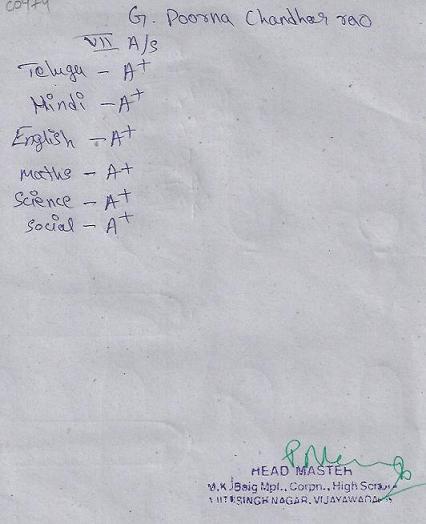 G. Poorna Chandhar rao
VII A/S
Telugu - A+
Hindi - A+
English - A+
Maths - A+
Science - A+
Social - A+
HEAD MASTER
M.K. Baig Mpl., Corpn., High School
SINGH NAGAR, VIJAYAWADA